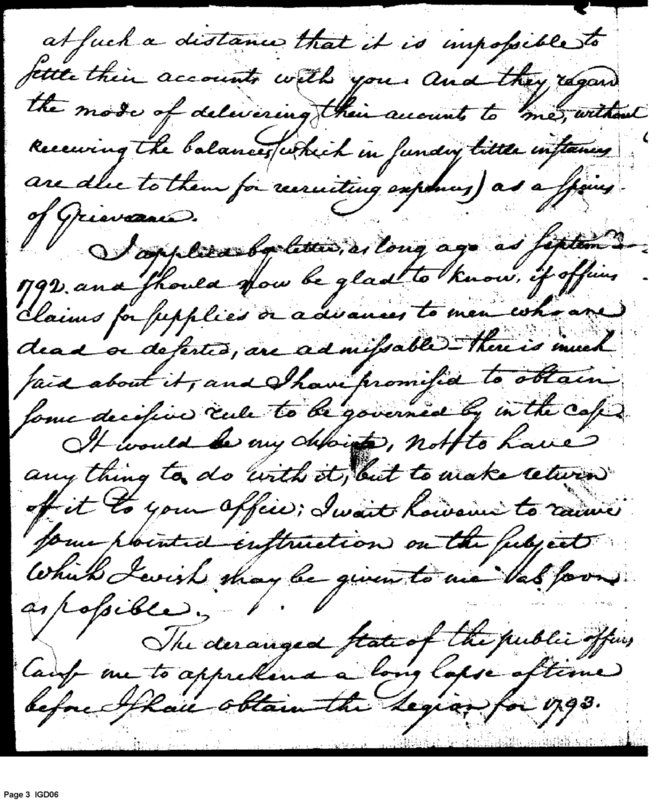 at such a distance that it is impossible to
settle their accounts with you. And they regard
the mode of delivering their accounts to me, without
receiving the balances (which in sundry little instances
are due to them for recruiting expenses) as a species
of Grievance.
I applied by letter, as long ago as Septem
1792. and should now be glad to know, if officers
claims for supplies or advances to men who are
dead or deserted, are admissable - there is much
said about it, and I have promised to obtain
some decisive rule to be governed by in the case.
It would be my choice, not to have
any thing to do with it, but to make return
of it to your office; I wait however to receive
some pointed instruction on the subject
which I wish may be given to me as soon
as possible.
The deranged state of the public offices
cause me to apprehend a long lapse of time
before I shall obtain the Legion for 1793.
Page 3 IGD06